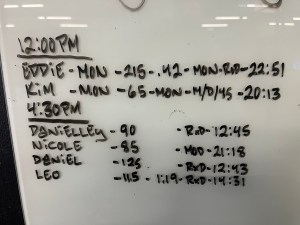 12:00PM
EDDIE - MON - 215 - .42 - MON - RXD - 22:51
KIM - MON - 65 - MON - M/D/45 - 20:13
4:30PM
DANIELLEY - 90 - RXD - 12:45
NICOLE - 85 - MOD - 21:18
DANIEL - 125 - RXD - 12:43
LEO - 115 - 1:19 - RXD - 14:31